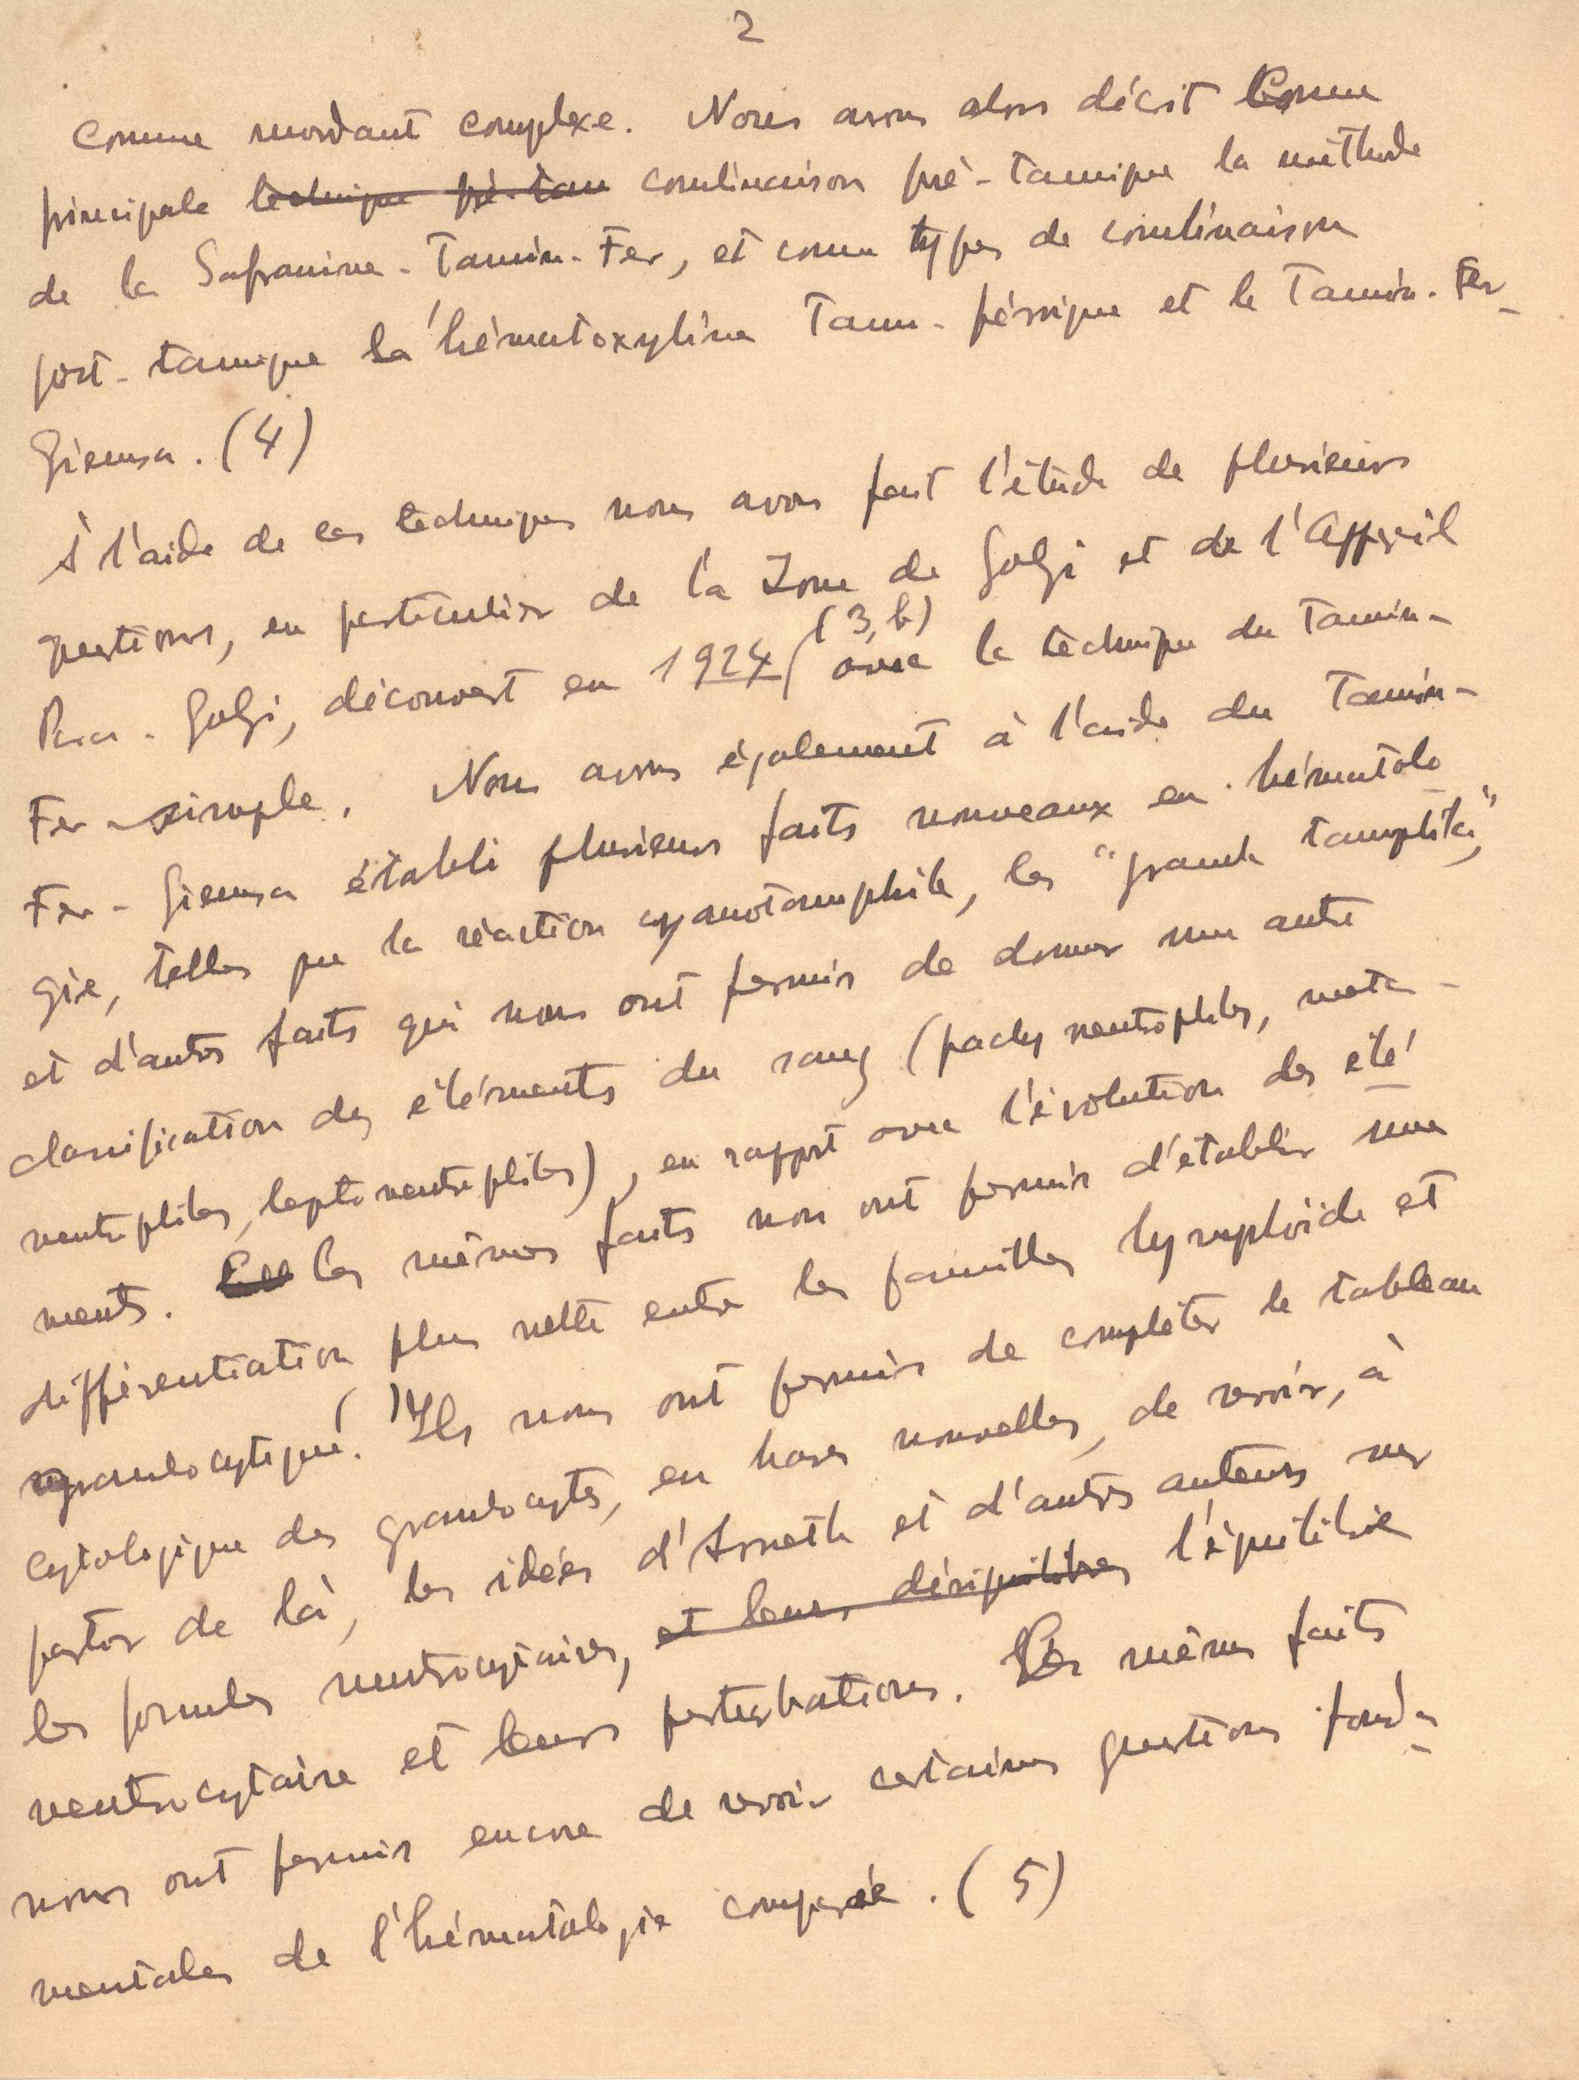 2
comme mordant complexe. Nous avons alors décrit comme
principale technique pré-tan combinaison pré-tannique la méthode
de la Safranine-Tannin-Fer, et comme types de combinaison
post-tannique la l'hématoxyline Tanno-ferrique et le Tannin-Fer-
Giemsa. (4)
À l'aide de ces techniques nous avons fait l'étude de plusieurs
questions, en particulier de la Zone de Golgi et de l'Appareil
Para-Golgi, découvert en 1924 (3,b) avec la technique du Tannin-
Fer simple. Nous avons également à l'aide du Tannin-
Fer-Giemsa établi plusieurs faits nouveaux en hématolo-
gie, telles que la réaction cyanotannophile, les "granula tannophiles",
et d'autres faits qui nous ont permis de donner une autre
classification des éléments du sang (pachyneutrophiles, meta-
neutrophiles, leptoneutrophiles), en rapport avec l'évolution des élé-
ments. Les mêmes faits nous ont permis d'établir une
différentiation plus nette entre les familles lymphoïde et
granulocytique. ( ) Ils nous ont permis de compléter le tableau
cytologique des granulocytes, en bases nouvelles, de revoir, à
partir de là, les idées d'Arneth et d'autres auteurs sur
les formules neutrocytaires, et leurs déséquilibres l'équilibre
neutrocytaire et leurs perturbations. Les mêmes faits
nous ont permis encore de revoir certaines questions fonda-
mentales de l'hématologie comparée. (5)